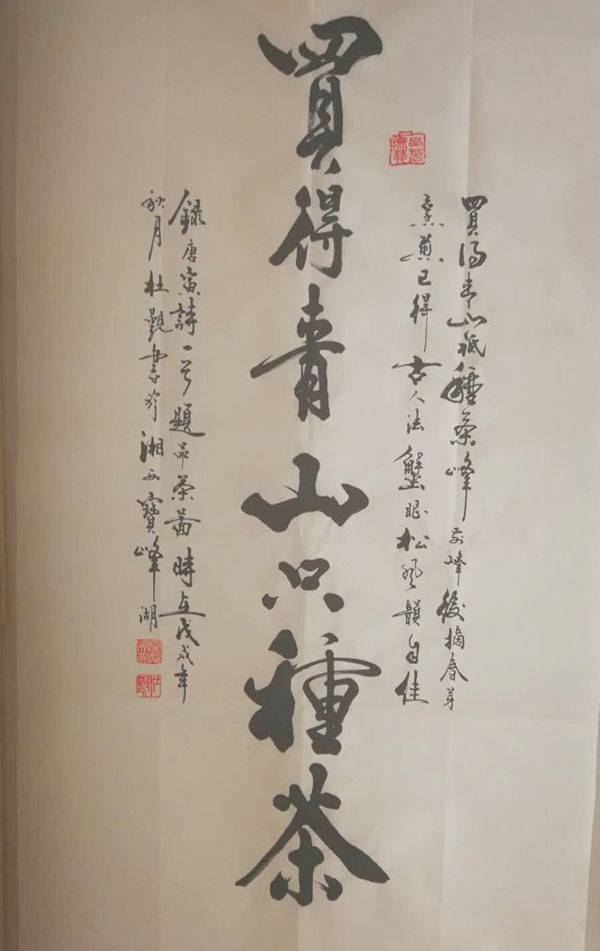 買得青山祇種茶峰前峰後摘春芽
烹煎已得古人法蟹眼松風韻自佳
買得青山只種茶
錄唐寅詩一首題品茶圖時在戊戌年
秋月杜觀書於湘西寶峰湖